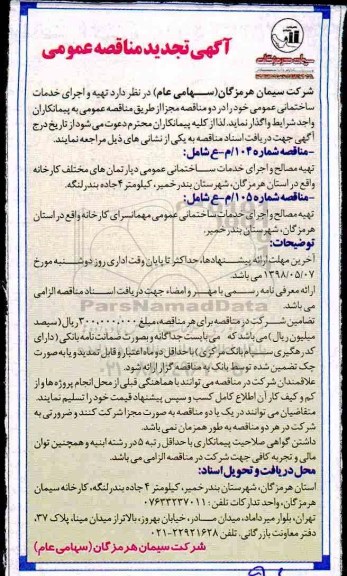 آگهی تجدید مناقصه عمومی
شرکت سیمان هرمزگان(سهامی عام) در نظر دارد تهیه و اجرای خدمات
ساختمانی عمومی خود را در دو مناقصه مجزا از طریق مناقصه عمومی به پیمانکاران
واجد شرایط واگذار نماید. لذا از کلیه پیمانکاران محترم دعوت می شود از تاریخ درج
آگهی جهت دریافت اسناد مناقصه به یکی از نشانی های ذیل مراجعه نمایند.
-مناقصه شماره ۱۰۴/م-ع شامل:
تهیه مصالح و اجرای خدمات ساختمانی عمومی دپارتمان های مختلف کارخانه
واقع در استان هرمزگان، شهرستان بندرخمیر، کیلومتر ۴ جاده بندرلنگه.
-مناقصه شماره ۱۰۵/م-ع شامل:
تهیه مصالح و اجرای خدمات ساختمانی عمومی مهمانسرای کارخانه واقع در استان
هرمزگان، شهرستان بندرخمیر.
توضیحات:
آخرین مهلت ارائه پیشنهادها، حداکثر تا پایان وقت اداری روز دوشنبه مورخ
۱۳۹۸/۰۵/۰۷ می باشد.
ارائه معرفی نامه رسمی با مهر و امضاء جهت دریافت اسناد مناقصه الزامی
می باشد.
ParsNamadData
تضامین شرکت در مناقصه برای هر مناقصه، مبلغ ۳۰۰،۰۰۰،۰۰۰ ریال (سیصد
میلیون ریال) می باشد که می بایست جداگانه و بصورت ضمانت نامه بانکی (دارای
کد رهگیری سپام بانک مرکزی) با حداقل دو ماه اعتبار و قابل تمدید و یا به صورت
چک تضمین شده توسط بانک به مناقصه گزار ارائه شود.
علاقمندان شرکت در مناقصه می توانند با هماهنگی قبلی از محل انجام پروژه ها و از
کم و کیف کار آن اطلاع کامل کسب و سپس پیشنهاد قیمت خود را تسلیم نمایند.
متقاضیان می توانند در یک یا دو مناقصه به صورت مجزا شرکت کنند و ضرورتی به
شرکت در هر دو مناقصه به طور همزمان نمی باشد.
داشتن گواهی صلاحیت پیمانکاری با حداقل رتبه ۵ در رشته ابنیه و همچنین توان
مالی و تجربه کافی جهت شرکت در مناقصه الزامی می باشد.
محل دریافت و تحویل اسناد:
استان هرمزگان، شهرستان بندرخمیر، کیلومتر ۴ جاده بندرلنگه، کارخانه سیمان
هرمزگان، واحد تدارکات تلفن: ۰۷۶۳۳۲۳۷۰۱۱
تهران، بلوار میرداماد، میدان مادر، خیابان بهروز، بالاتر از میدان مینا، پلاک ۳۷،
دفتر معاونت بازرگانی. تلفن: ۲۲۹۲۱۶۲۸-۰۲۱
شرکت سیمان هرمزگان (سهامی عام)